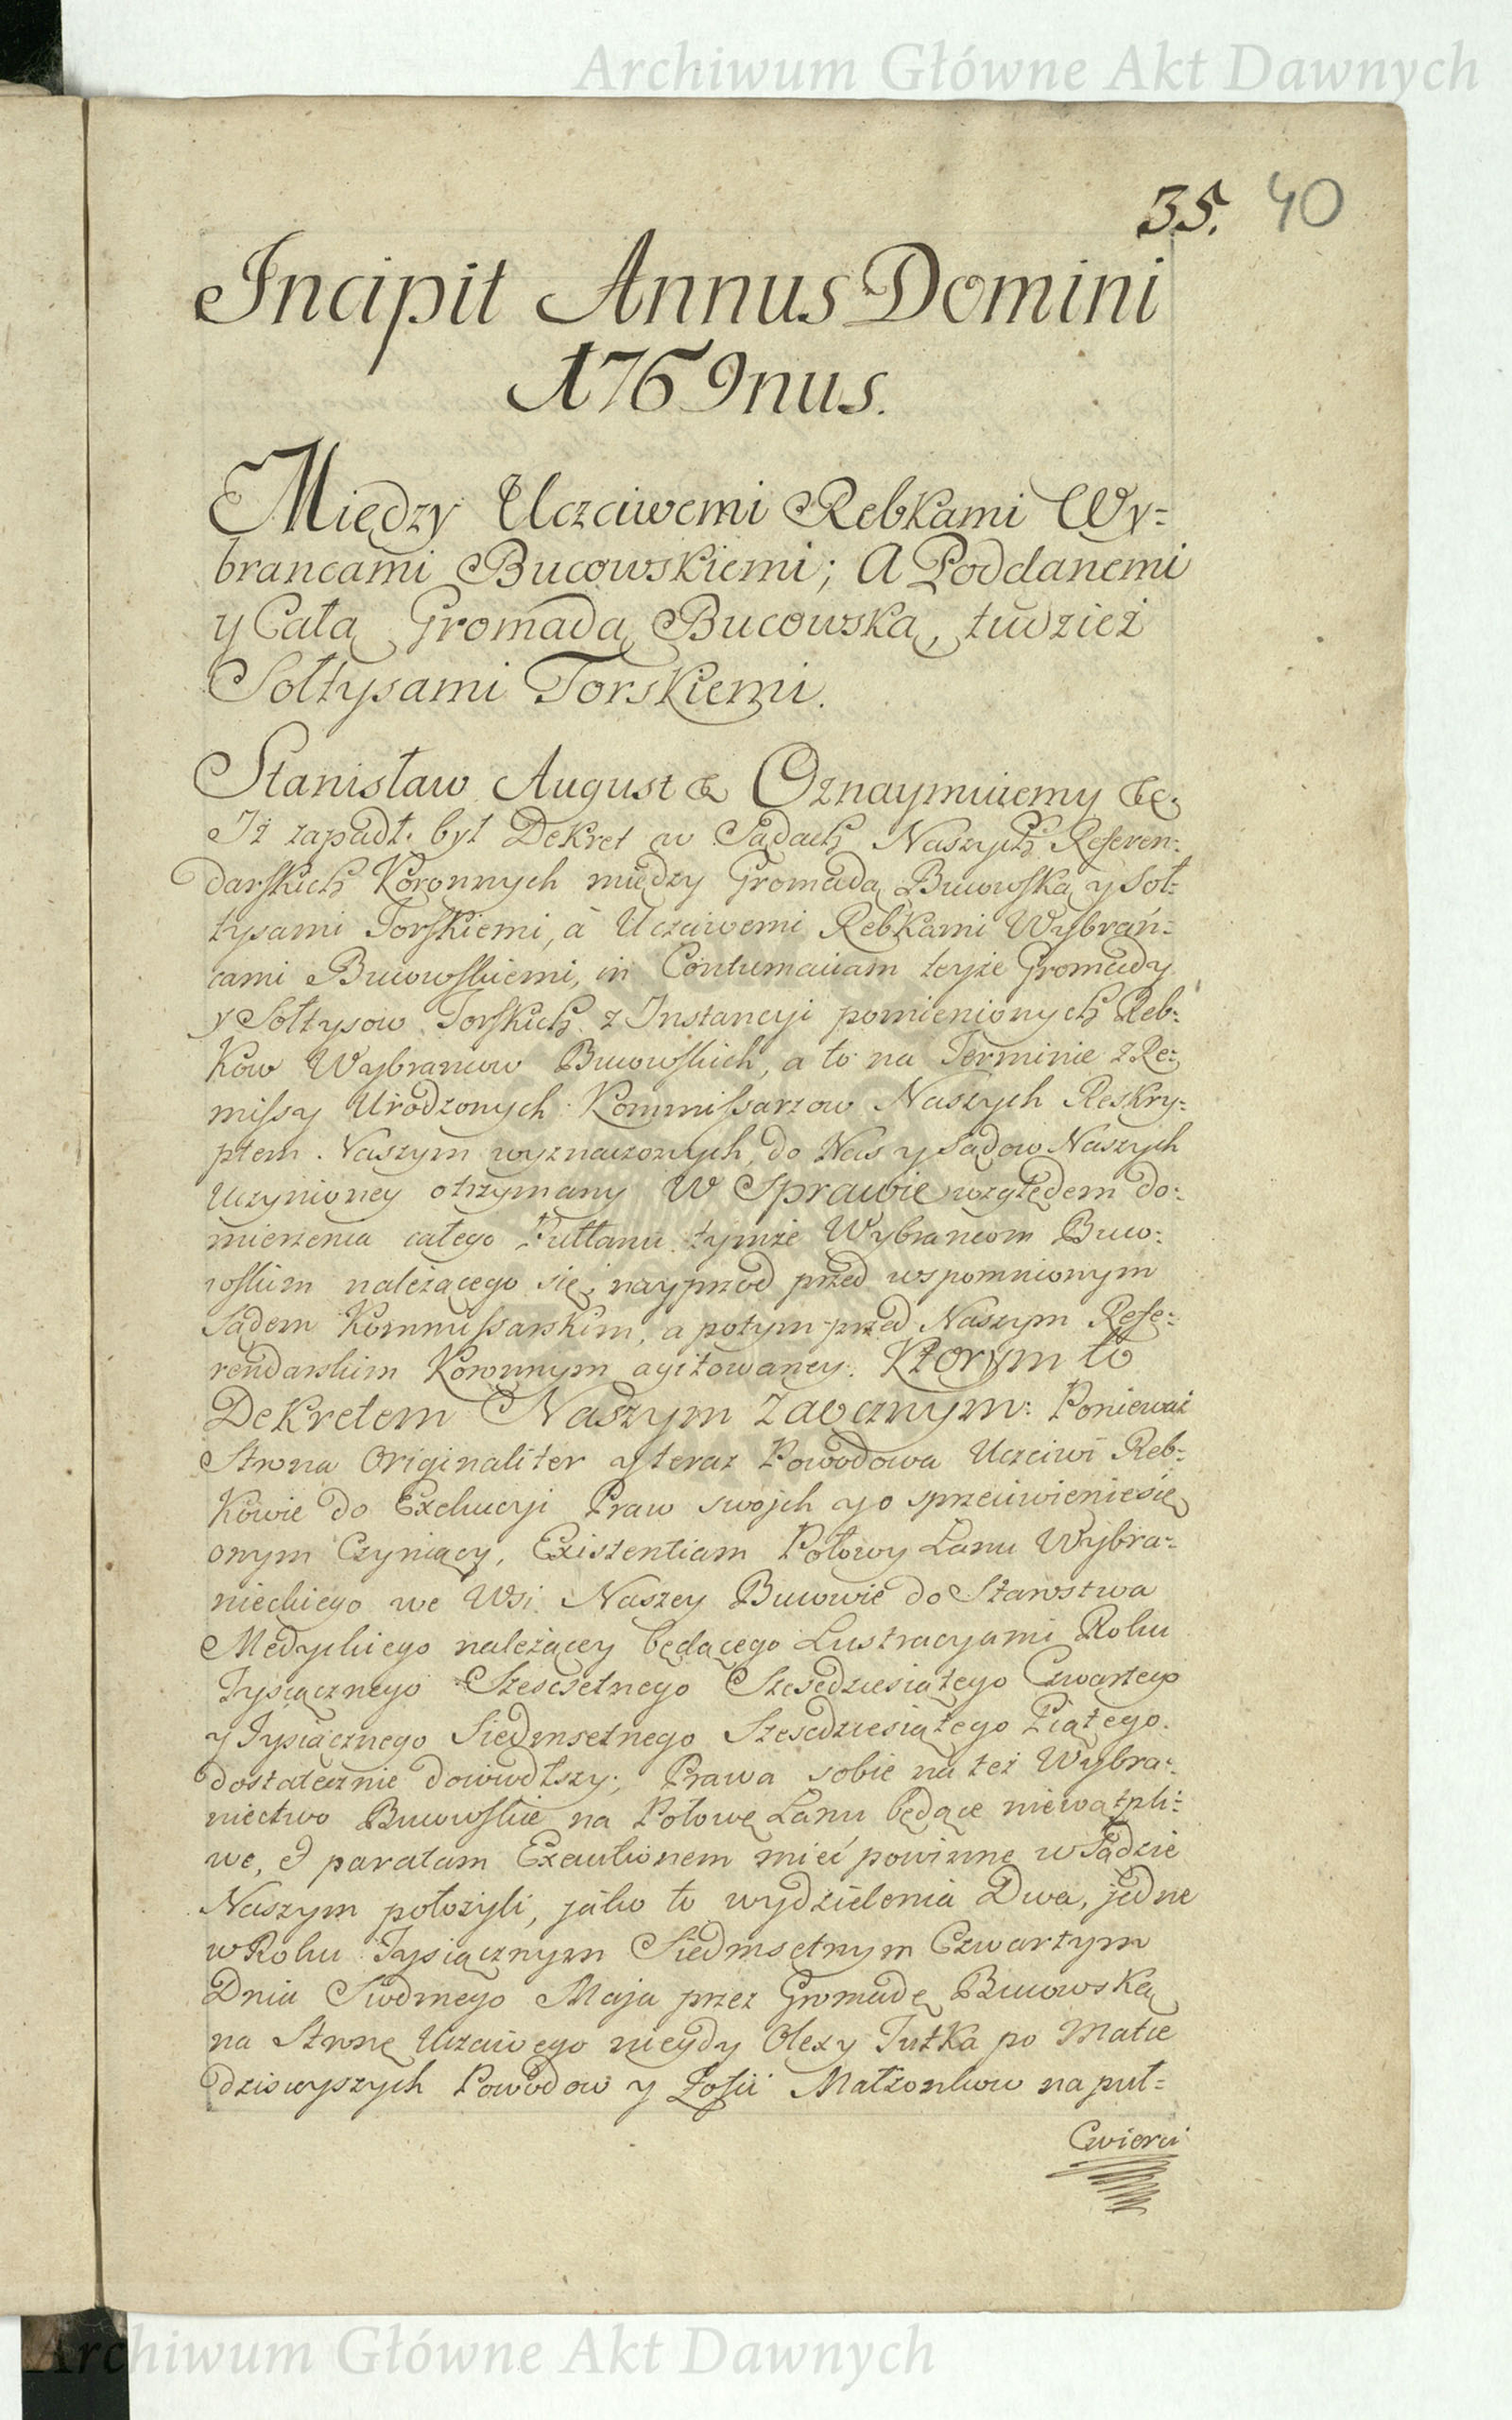 Archiwum Główne Akt Dawnych
35. 40
Incipit Annus Domini
1769nus.
Między Uczciwemi Rebkami Wy=
brancami Bucowskiemi; A Poddanemi
y Całą Gromadą Bucowską, tudzież
Sołtysami Torskiemi.
Stanisław August &c Oznaymuiemy &c.
Iż zapadł był Dekret w Sądach Naszych Referen=
darskich Koronnych między Gromadą Bucowską y Soł=
tysami Torskiemi, à Uczciwemi Rebkami Wybrań=
cami Bucowskiemi, in Contumaciam teyże Gromady
y Sołtysow Torskich z Instancyi pomienionych Reb=
kow Wybrancow Bucowskich, a to na Terminie z Re=
missy Urodzonych Kommissarzow Naszych Reskry=
ptem Naszym wyznaczonych, do Nas y Sądow Naszych
uczynioney otrzymany W Sprawie względem do=
mierzenia całego Pułłanu tymże Wybrancom Buco=
wskim należącego się, nayprzod przed wspomnionym
Sądem Kommissarskim, a potym przed Naszym Refe=
rendarskim Koronnym agitowaney. Ktorym to
Dekretem Naszym Zaocznym: Ponieważ
Strona Originaliter y teraz Powodowa Uczciwi Reb=
kowie do Exekucyi Praw swojch y o sprzeciwienie się
onym Czyniący, Existentiam Połowy Łanu Wybra=
nieckiego we Wsi Naszey Bucowie do Starostwa
Medyckiego należącey będącego Lustracyami Roku
Tysiącznego Szescsetnego Szescdziesiątego Czwartego
y Tysiącznego Siedmsetnego Szescdziesiątego Piątego
dostatecznie dowiodłszy, Prawa sobie na też Wybra=
niectwo Bucowskie na Połowę Łanu będące niewątpli=
we, & paratam Executionem mieć powinne w Sądzie
Naszym położyli, jako to wydzielenia Dwa, jedne
w Roku Tysiącznym Siedmsetnym Czwartym
Dnia Siodmego Maja przez Gromadę Bucowską
na Stronę Uczciwego niegdy Olexy Tutka po Matce
dzisieyszych Powodow y Zofii Małżonkow na puł=
Cwierci
Archiwum Główne Akt Dawnych